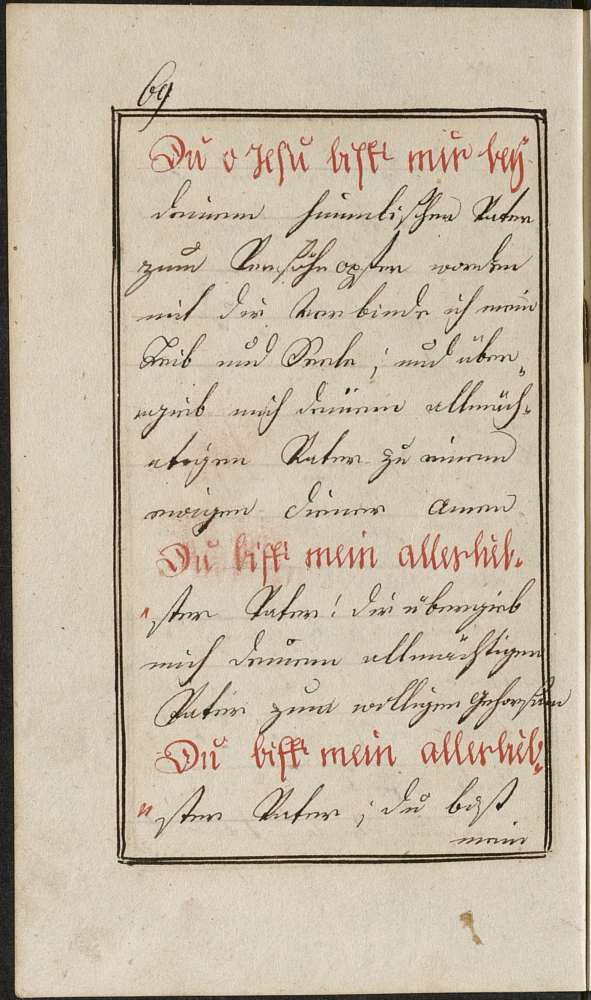 69
Du o Jesu bist mir bey
deinem himmlischen Vater
zum Versöhnopfer worden
mit dir verbinde ich mein
Leib und Seele; und über„
„gieb mich deinem allmäch„
„tigen Vater zu einem
ewigen Diener Amen
Du bist mein allerlieb„
„ster Vater! dir übergieb
mich deinem allmächtigen
Vater zum willigen Gehorsam
Du bist mein allerlieb„
„ster Vater; du bist
mein